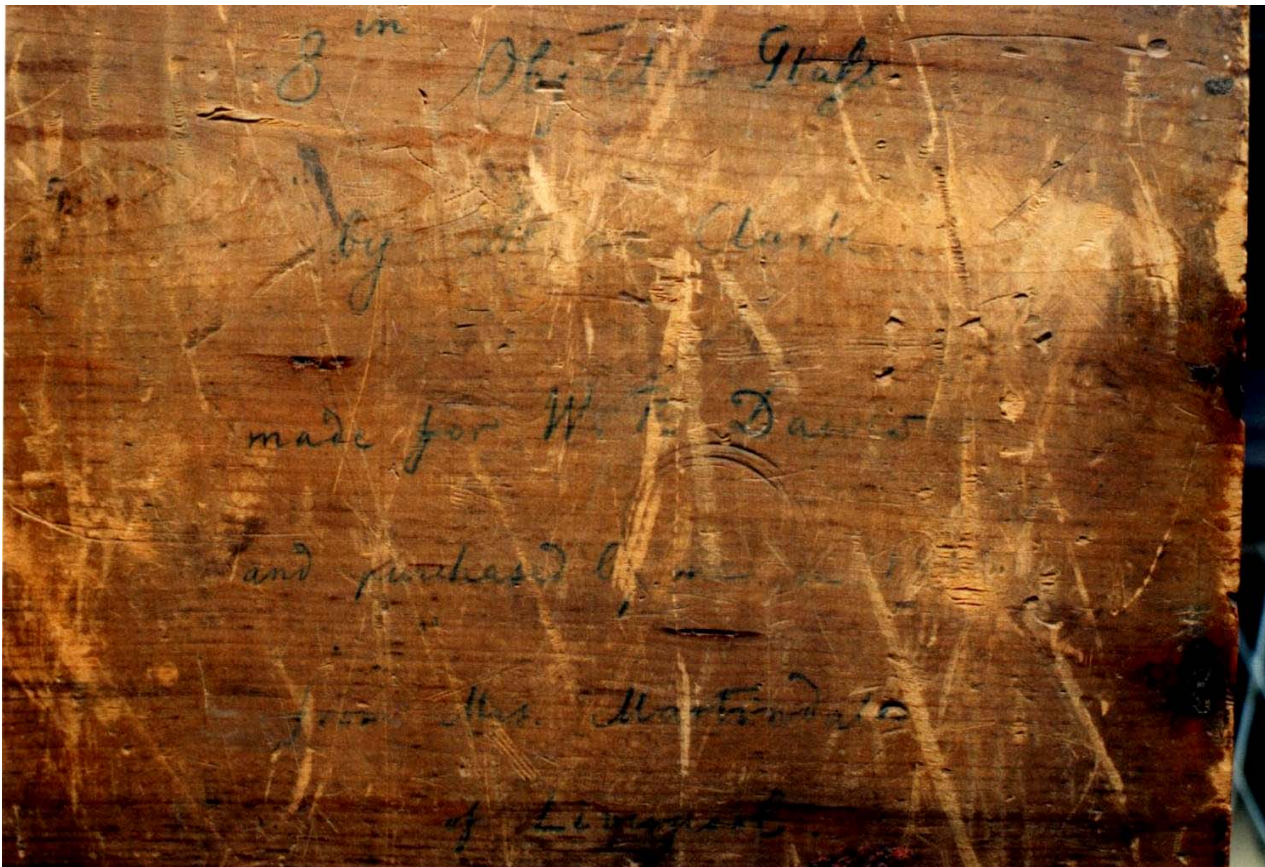 8 in Object Glass.
by Clark
made for W. R. Dawes
and purchased by me in
from Mrs. Martindale
of Liverpool.